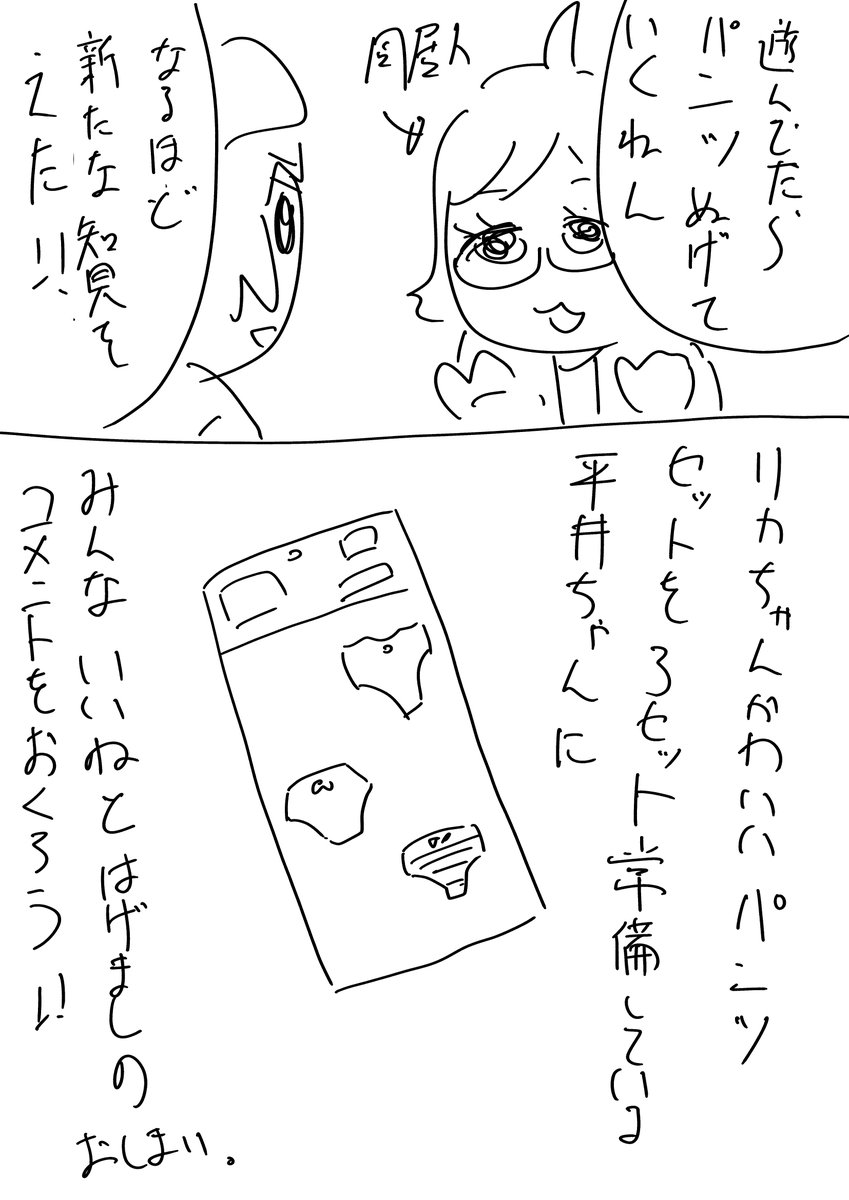 遊んでたら
パンツぬげて
いくねん
なるほど
新たな知見を
えた!!
リカちゃんかわいいパンツ
セットを3セット常備している
平井ちゃんに
みんないいねとはげましの
コメントをおくろう!!
おしまい。